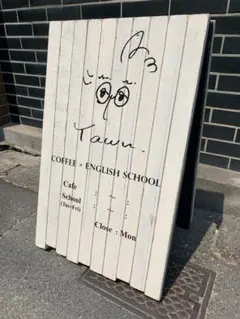 Yawn.
COFFEE + ENGLISH SCHOOL
Cafe : - :
School : - :
(Tue-Fri) : - :
Close : Mon